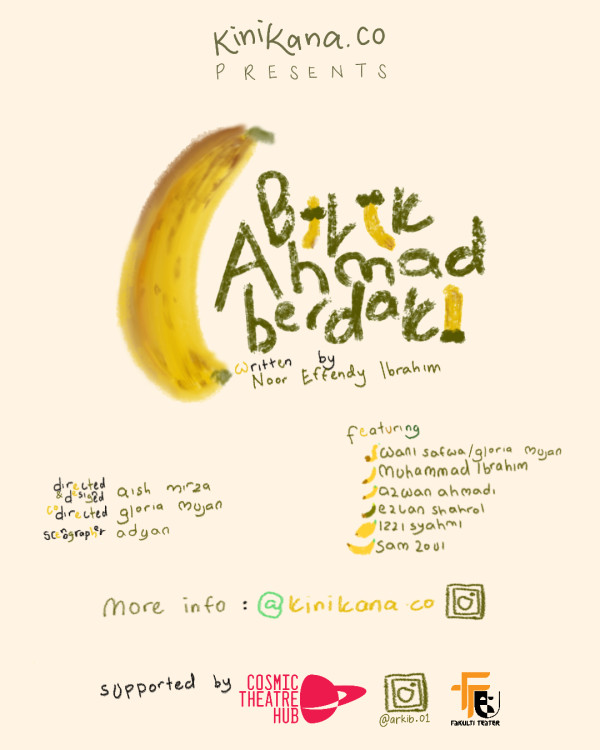 Kinikana.co
PRESENTS
Bilik
Ahmad
berdaki
written by
Noor Effendy Ibrahim
featuring
wani safwa/gloria mujan
Muhammad Ibrahim
azwan ahmadi
ezlan shahrol
izzi syahmi
Sam Zoui
directed
& designed aish mirza
co directed gloria mujan
scenographer adyan
More info : @kinikana.co
supported by
COSMIC
THEATRE
HUB
@arkib.01
FAKULTI TEATER